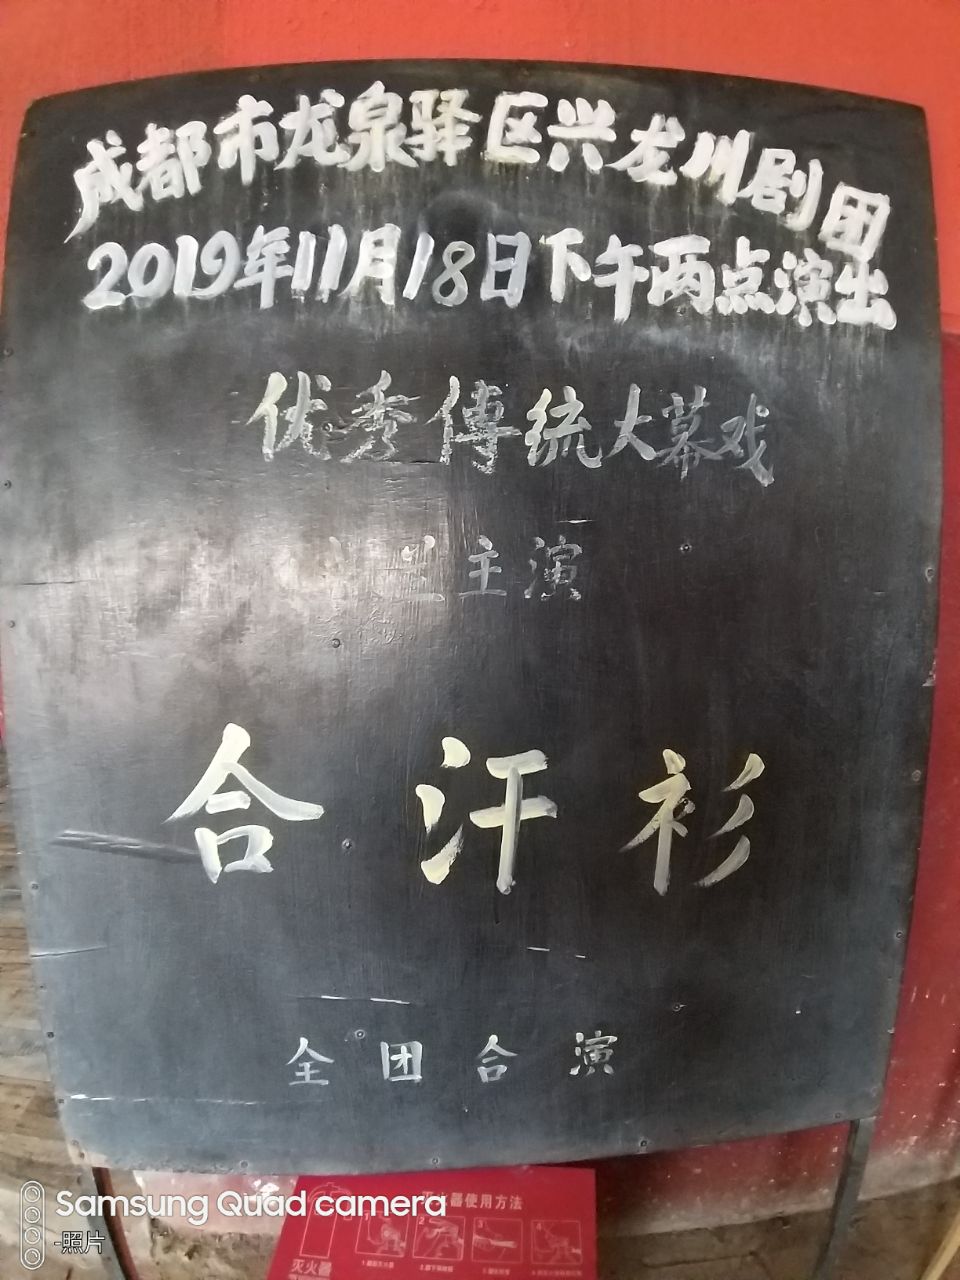 成都市龙泉驿区兴龙川剧团
2019年11月18日下午两点演出
优秀傅统大幕戏
兰主演
合汗衫
全团合演
灭火器使用方法
1 2 3 4
灭火器
Samsung Quad camera
-照片